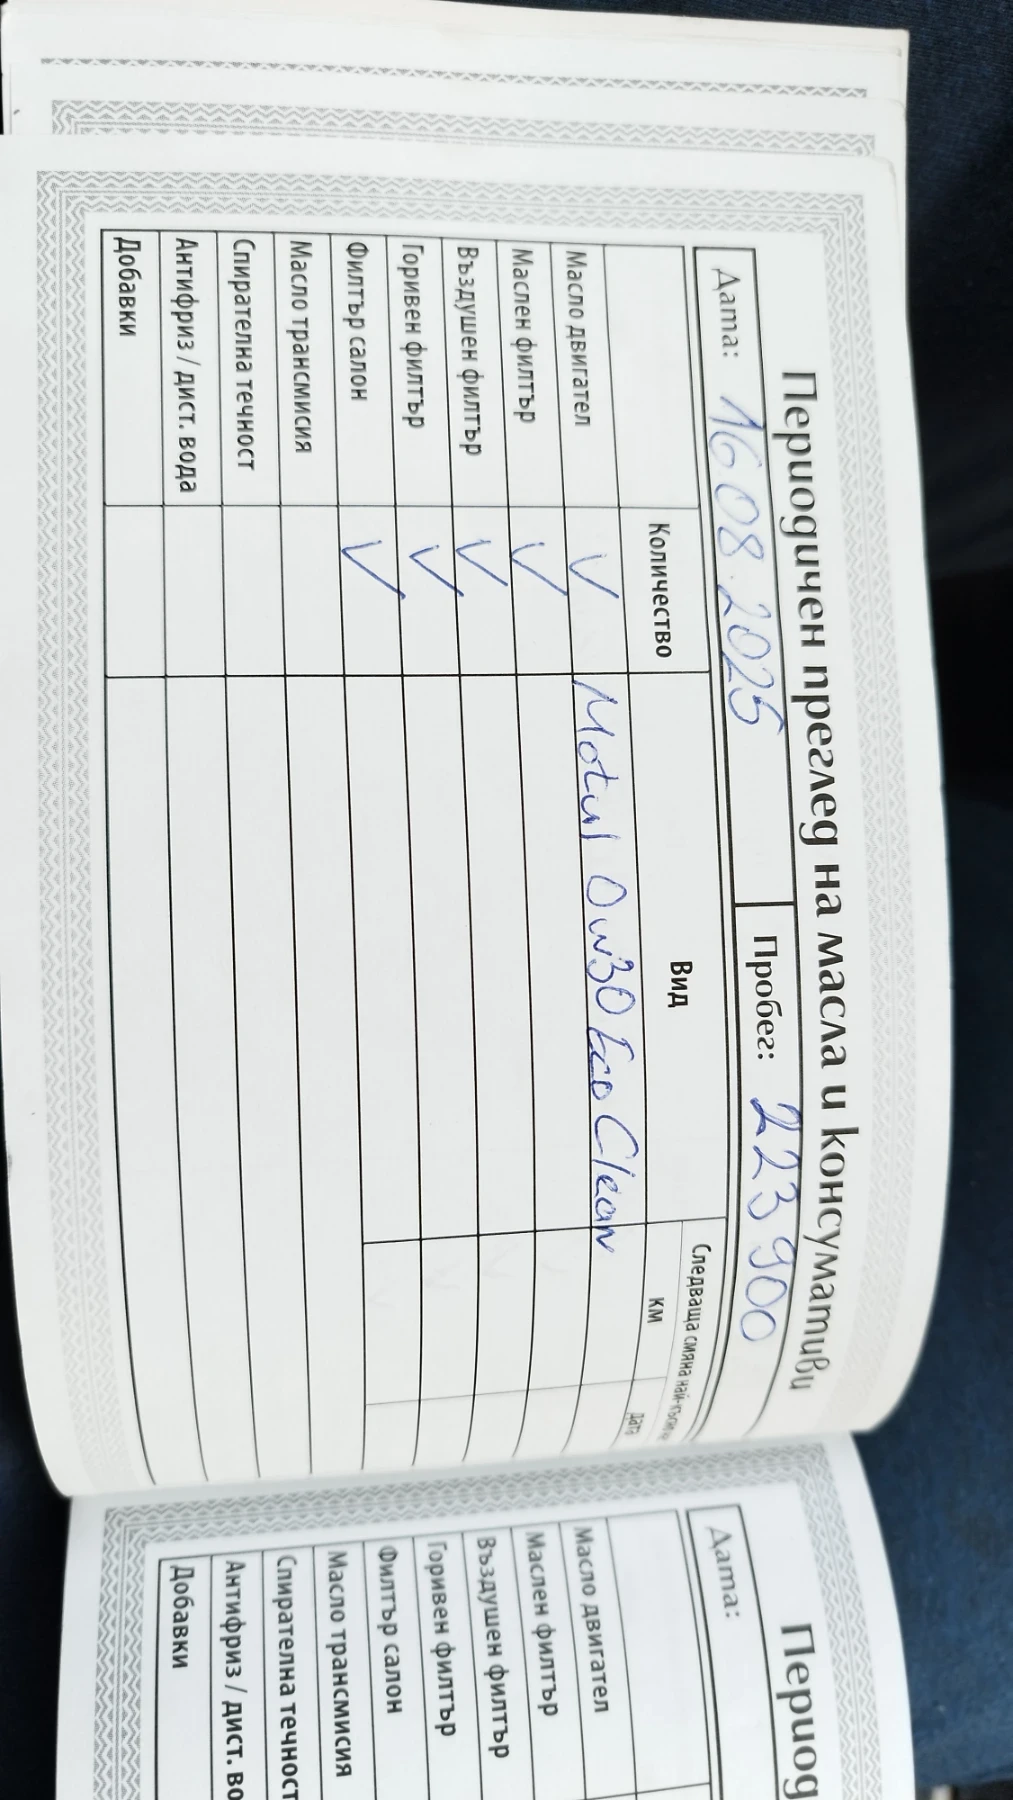 Периодичен преглед на масла и консумативи
Дата: 16.08.2025 Пробег: 223 900
Количество Вид Следваща смяна най-късно
КМ Дата
Масло двигател V Motul 0w30 Eco Clean
Маслен филтър V
Въздушен филтър V
Горивен филтър V
Филтър салон V
Масло трансмисия
Спирателна течност
Антифриз / дист. вода
Добавки
Период
Дата:
Масло двигател
Маслен филтър
Въздушен филтър
Горивен филтър
Филтър салон
Масло трансмисия
Спирателна течност
Антифриз / дист. во
Добавки